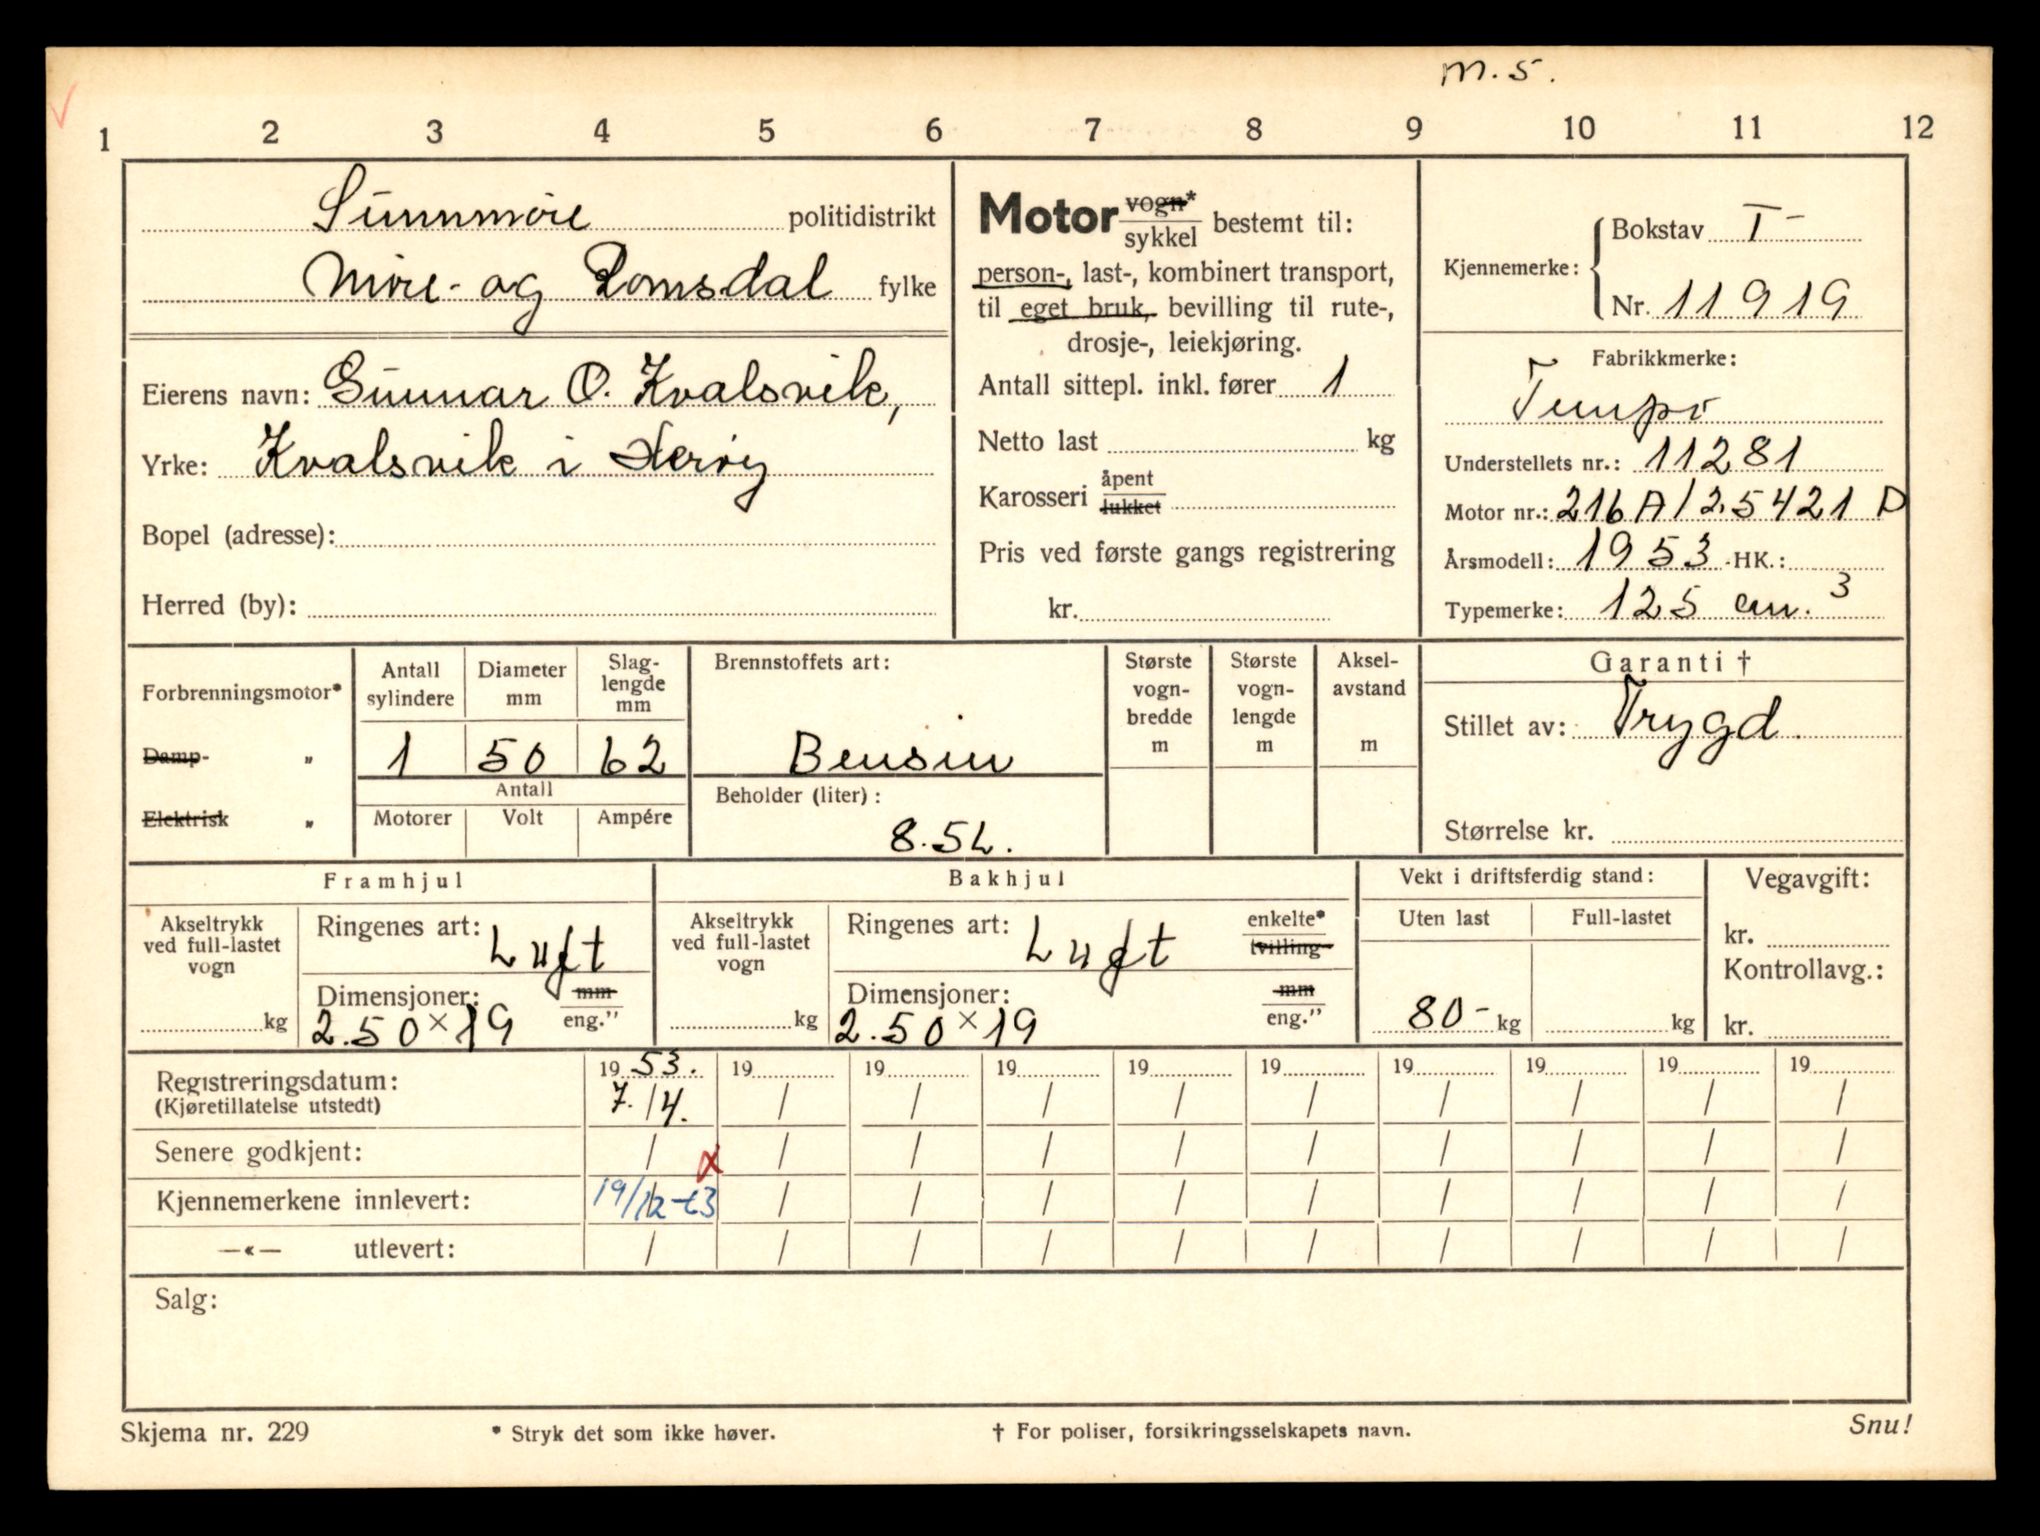 m.s.
1 2 3 4 5 6 7 8 9 10 11 12
Sunnmøre politidistrikt
Møre- og Romsdal fylke
Eierens navn: Gunnar O. Kvalsvik,
Yrke: Kvalsvik i Herøy
Bopel (adresse):
Herred (by):
Motor vogn* sykkel bestemt til:
person-, last-, kombinert transport,
til eget bruk, bevilling til rute-,
drosje-, leiekjøring.
Antall sittepl. inkl. fører 1
Netto last kg
Karosseri åpent lukket
Pris ved første gangs registrering
kr.
Kjennemerke: Bokstav T-
Nr. 11919
Fabrikkmerke:
Tempo
Understellets nr.: 11281
Motor nr.: 216A/25421 D
Årsmodell: 1953 HK.:
Typemerke: 125 cm.3
Forbrenningsmotor*
Damp- "
Elektrisk "
Antall sylindere
Diameter mm
Slag-lengde mm
1 50 62
Antall
Motorer Volt Ampére
Brennstoffets art:
Bensin
Beholder (liter):
8.5L.
Største vogn-bredde m
Største vogn-lengde m
Aksel-avstand m
Garanti †
Stillet av: Trygd.
Størrelse kr.
Framhjul
Akseltrykk ved full-lastet vogn
kg
Ringenes art: Luft
Dimensjoner: mm eng."
2.50 x 19
Bakhjul
Akseltrykk ved full-lastet vogn
kg
Ringenes art: Luft enkelte* tvilling-
Dimensjoner: mm eng."
2.50 x 19
Vekt i driftsferdig stand:
Uten last Full-lastet
80- kg kg
Vegavgift:
kr.
Kontrollavg.:
kr.
Registreringsdatum: 1953. 19 19 19 19 19 19 19 19 19
(Kjøretillatelse utstedt) 7./4. / / / / / / / / /
Senere godkjent: / x / / / / / / / / /
Kjennemerkene innlevert: 19/12-63 / / / / / / / / /
—«— utlevert: / / / / / / / / / /
Salg:
Skjema nr. 229 * Stryk det som ikke høver. † For poliser, forsikringsselskapets navn. Snu!